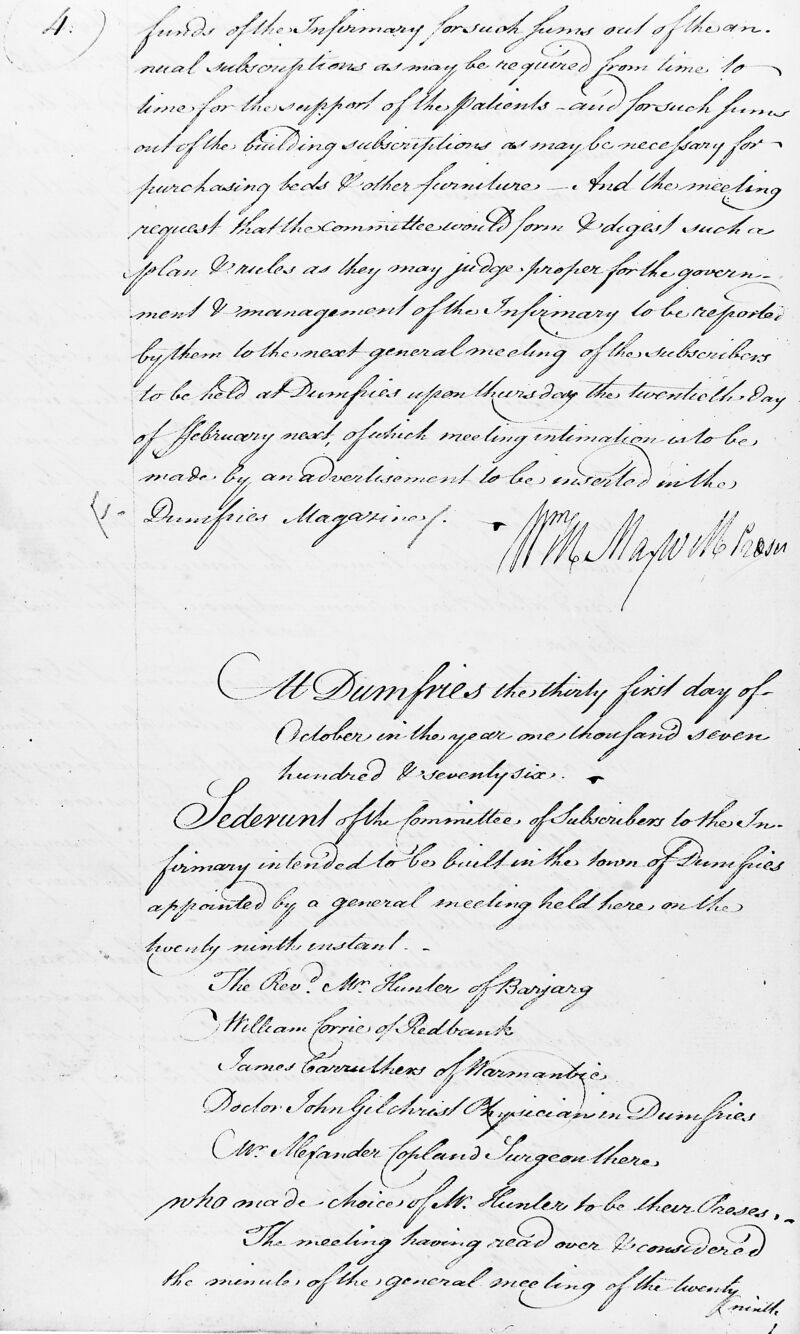 4.
funds of the Infirmary for such sums out of the an-
nual subscriptions as may be required from time to
time for the support of the patients – and for such sums
out of the building subscriptions as may be necessary for
purchasing beds & other furniture – And the meeting
request that the committee would form & digest such a
plan & rules as they may judge proper for the govern-
ment & management of the Infirmary to be reported
by them to the next general meeting of the subscribers
to be held at Dumfries upon thursday the twentieth day
of ffebruary next, of which meeting intimation is to be
made by an advertisement to be inserted in the
Dumfries Magazine/.
Wm Maxwell Preses
At Dumfries the thirty first day of
October in the year one thousand seven
hundred & seventy six.
Sederunt of the Committee of Subscribers to the In-
firmary intended to be built in the town of Dumfries
appointed by a general meeting held here on the
twenty ninth instant. -
The Revd. Mr. Hunter of Barjarg
William Corrie of Redbank
James Carruthers of Warmanbie
Doctor John Gilchrist Physician in Dumfries
Mr. Alexander Copland Surgeon there
who made choice of Mr. Hunter to be their Preses. -
The meeting having read over & considered
the minute of the general meeting of the twenty
ninth